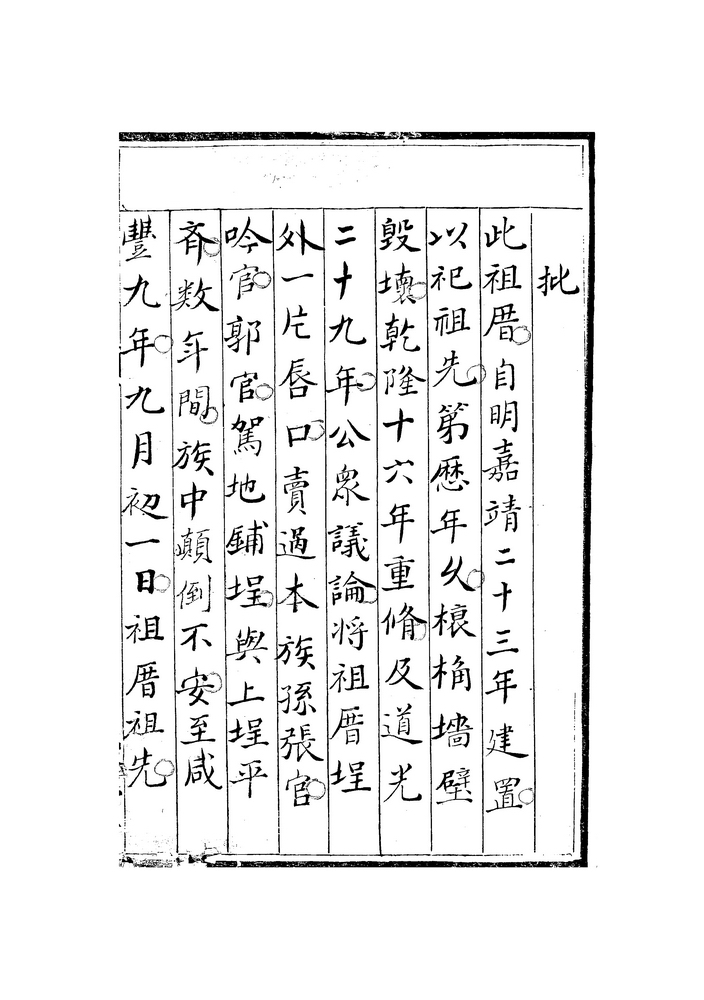 批
此祖厝自明嘉靖二十三年建置
以祀祖先第歷年久榱桷墻壁
毀壞乾隆十六年重脩及道光
二十九年公衆議論将祖厝埕
外一片唇口賣過本族孫張官
吟官郭官駕地鋪埕與上埕平
斉数年間族中顛倒不安至咸
豐九年九月初一日祖厝祖先